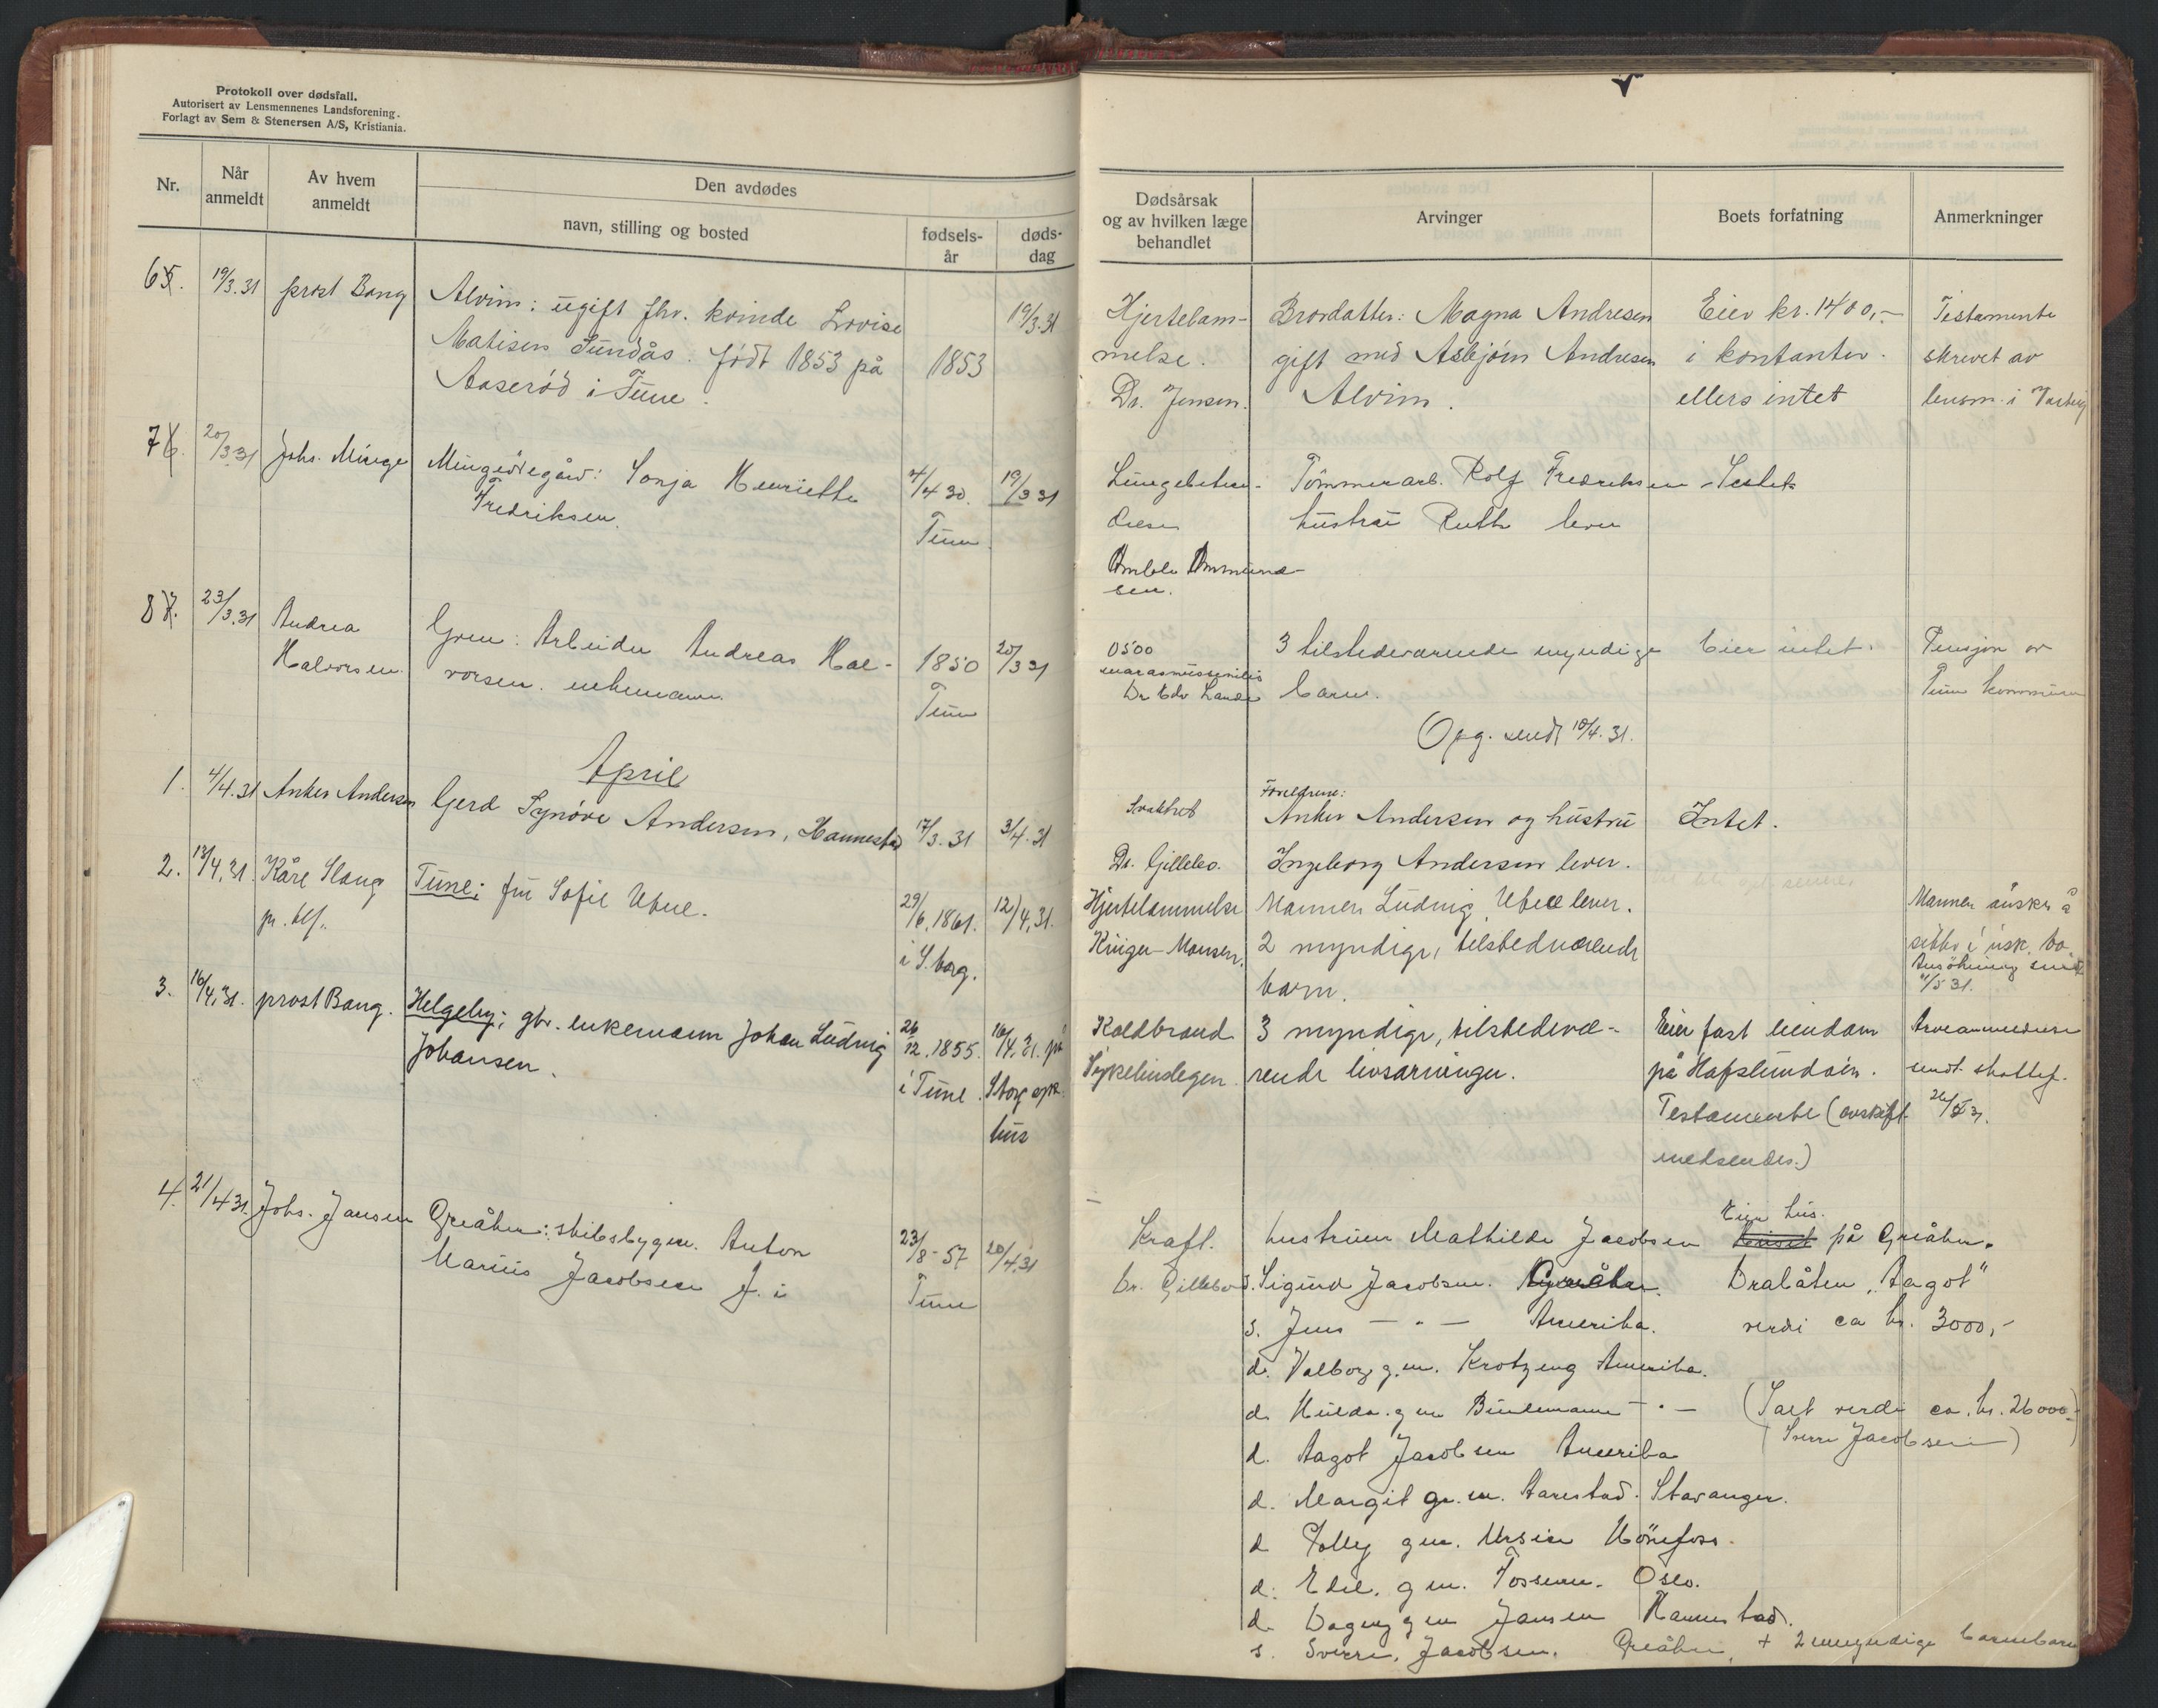 Protokoll over dødsfall.
Autorisert av Lensmennenes Landsforening.
Forlagt av Sem & Stenersen A/S, Kristiania.
Nr.
Når anmeldt
Av hvem anmeldt
Den avdødes
navn, stilling og bosted
fødsels-år
døds-dag
Dødsårsak og av hvilken læge behandlet
Arvinger
Boets forfatning
Anmerkninger
65.
19/3.31
prost Bang
Alvim: ugift fhv. kvinde Lovise
Matisen Sundås. født 1853 på
Aaserød i Tune.
1853
19/3.31
Hjertelam-
melse.
Dr. Jensen.
Brordatter: Magna Andresen
gift med Asbjørn Andresen
Alvim.
Eier kr. 1400,-
i kontanter.
ellers intet
Testamente
skrevet av
lensm. i Varteig
76.
20/3.31
Johs. Minge
Mingeødegård: Sonja Henriette
Fredriksen.
4/4 30.
Tune.
19/3 31
Lungebeten-
delse
Amble Ammund-
sen.
Tømmerarb. Rolf Fredriksen
hustru Ruth lever
Intet
87.
23/3.31
Andrea
Halvorsen.
Gren: Arbeider Andreas Hal-
vorsen. enkemann.
1850
Tune
20/3 31
0500
marasmus senilis
Dr Edv Lande
3 tilstedeværende myndige
barn.
Eier intet.
Pensjon av
Tune kommune
Opg. sendt 10/4.31.
April
1.
4/4.31
Anker Andersen
Gerd Synøve Andersen, Hannestad
17/3.31
3/4.31
Svakhet
Dr. Gillebo.
Foreldrene:
Anker Andersen og hustru
Ingeborg Andersen lever.
Intet.
2.
13/4.31.
Kåre Slang
pr. tlf.
Tune; fru Sofie
29/6.1861.
i S.borg.
12/4.31.
Hjertelammelse
Krüger-Monsen.
Mannen Ludvig lever.
2 myndige, tilstedværende
barn.
Mannen ønsker å
sitte i usk. bo.
Ansøkning sendt
4/5 31.
3.
16/4.31.
prost Bang.
Helgeby; gbr. enkemann Johan Ludvig
Johansen.
26/12.1855.
i Tune.
16/4.31. på
S.borg syk
hus
Koldbrand
Sykehuslegen.
3 myndige, tilstedevæ-
rende livsarvinger.
Eier fast eiendom
på Hafslundsøen.
Testamente (avskift
medsendes.)
Arveanmeldelse
sendt skattef.
26/5 31.
4.
21/4 31.
Johs. Jansen
Greåker: skibsbygm. Anton
Marius Jacobsen f. i
23/8-57
Tune
20/4.31
Kræft.
Dr. Gillebo
hustruen Mathilde Jacobsen
s. Sigurd Jacobsen. Greåker.
s. Jens — " — Amerika.
d. Valborg g.m. Krotzeng Amerika.
d. Hulda. g m Bindemann — " —
d. Aagot Jacobsen Amerika
d. Margit g. m. Aarestad. Stavanger.
d Tolly g m. Ursin Hönefoss.
d. Edel. g m. Fossum. Oslo.
d. Dagny g m Jansen Hannestad.
s. Sverre. Jacobsen. Greåker, + 2 umyndige barnebarn
Eier hus.
Huset på Greåker.
Dralåten „Aagot"
verdi ca kr. 3000,-
(Salt verdi ca. kr. 26000.-
Sverre Jacobsen)